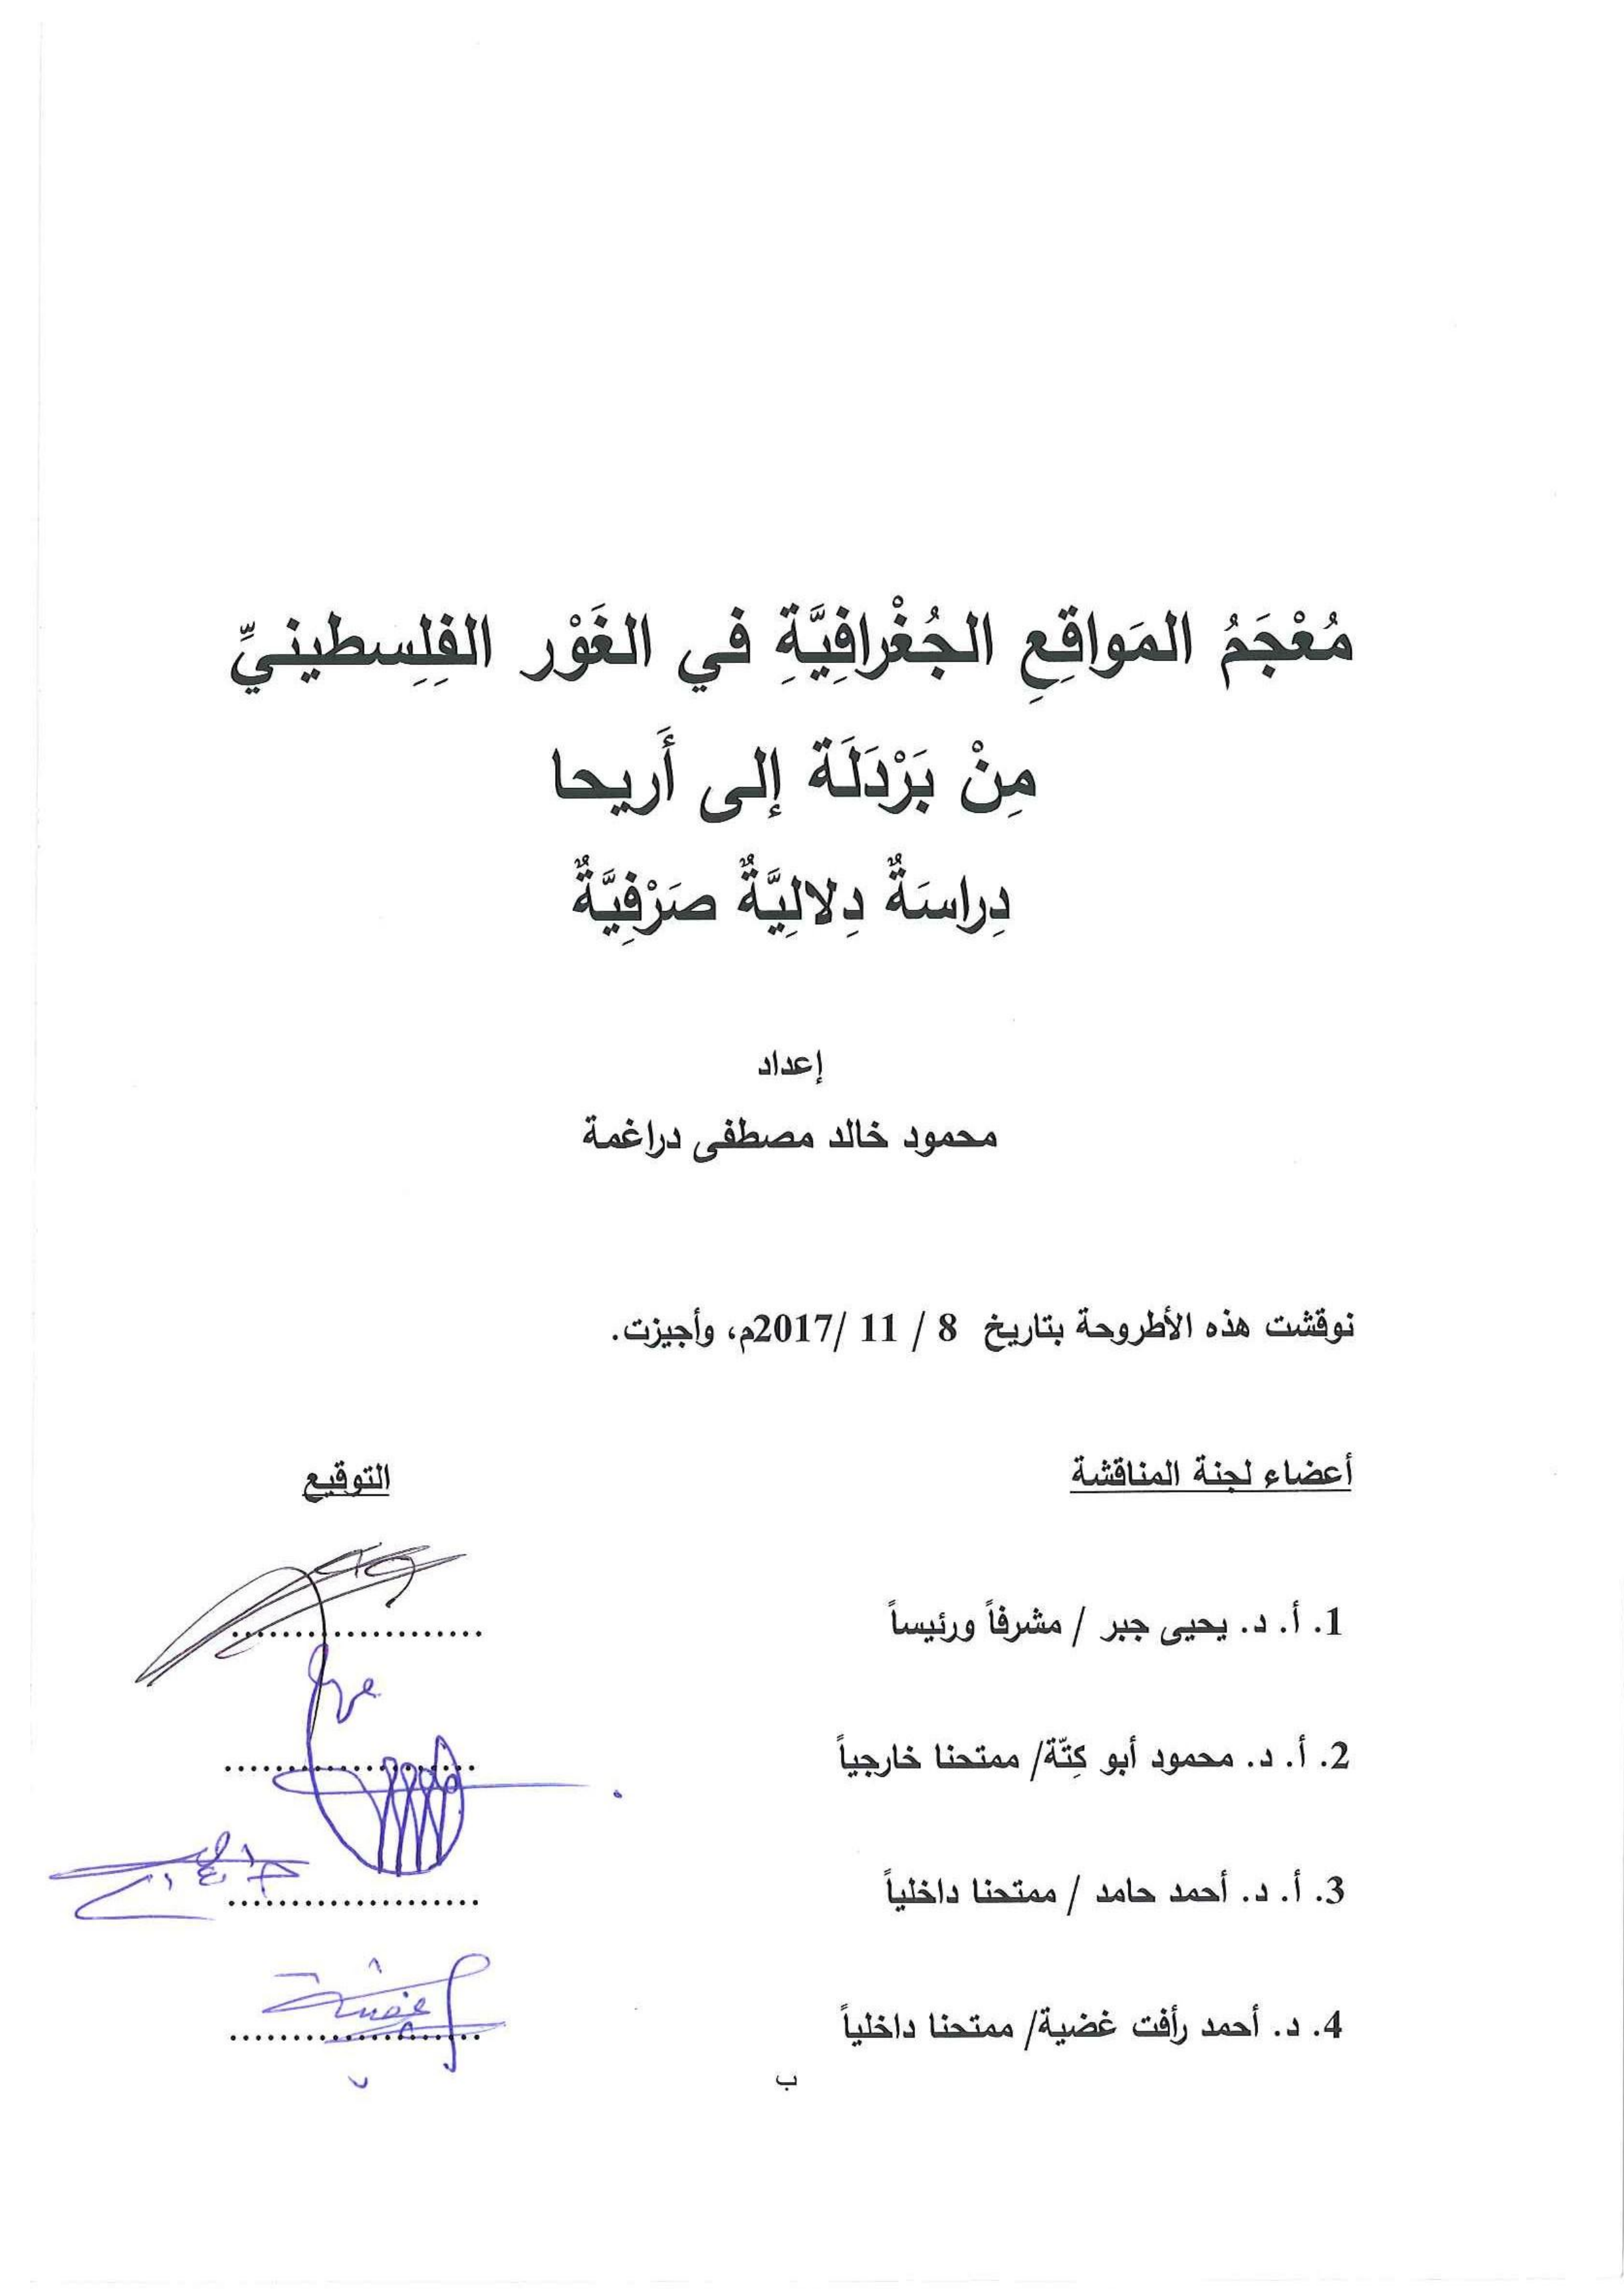 مُعْجَمُ المَواقِعِ الجُغْرافِيَّةِ في الغَوْر الفِلِسطينيِّ
مِنْ بَرْدَلَة إلى أَريحا
دِراسَةٌ دِلالِيَّةٌ صَرْفِيَّةٌ
إعداد
محمود خالد مصطفى دراغمة
نوقشت هذه الأطروحة بتاريخ 8 / 11 /2017م، وأجيزت.
أعضاء لجنة المناقشة التوقيع
1. أ. د. يحيى جبر / مشرفاً ورئيساً ....................
2. أ. د. محمود أبو كِتّة/ ممتحنا خارجياً ....................
3. أ. د. أحمد حامد / ممتحنا داخلياً ....................
4. د. أحمد رأفت غضية/ ممتحنا داخلياً ....................
ب